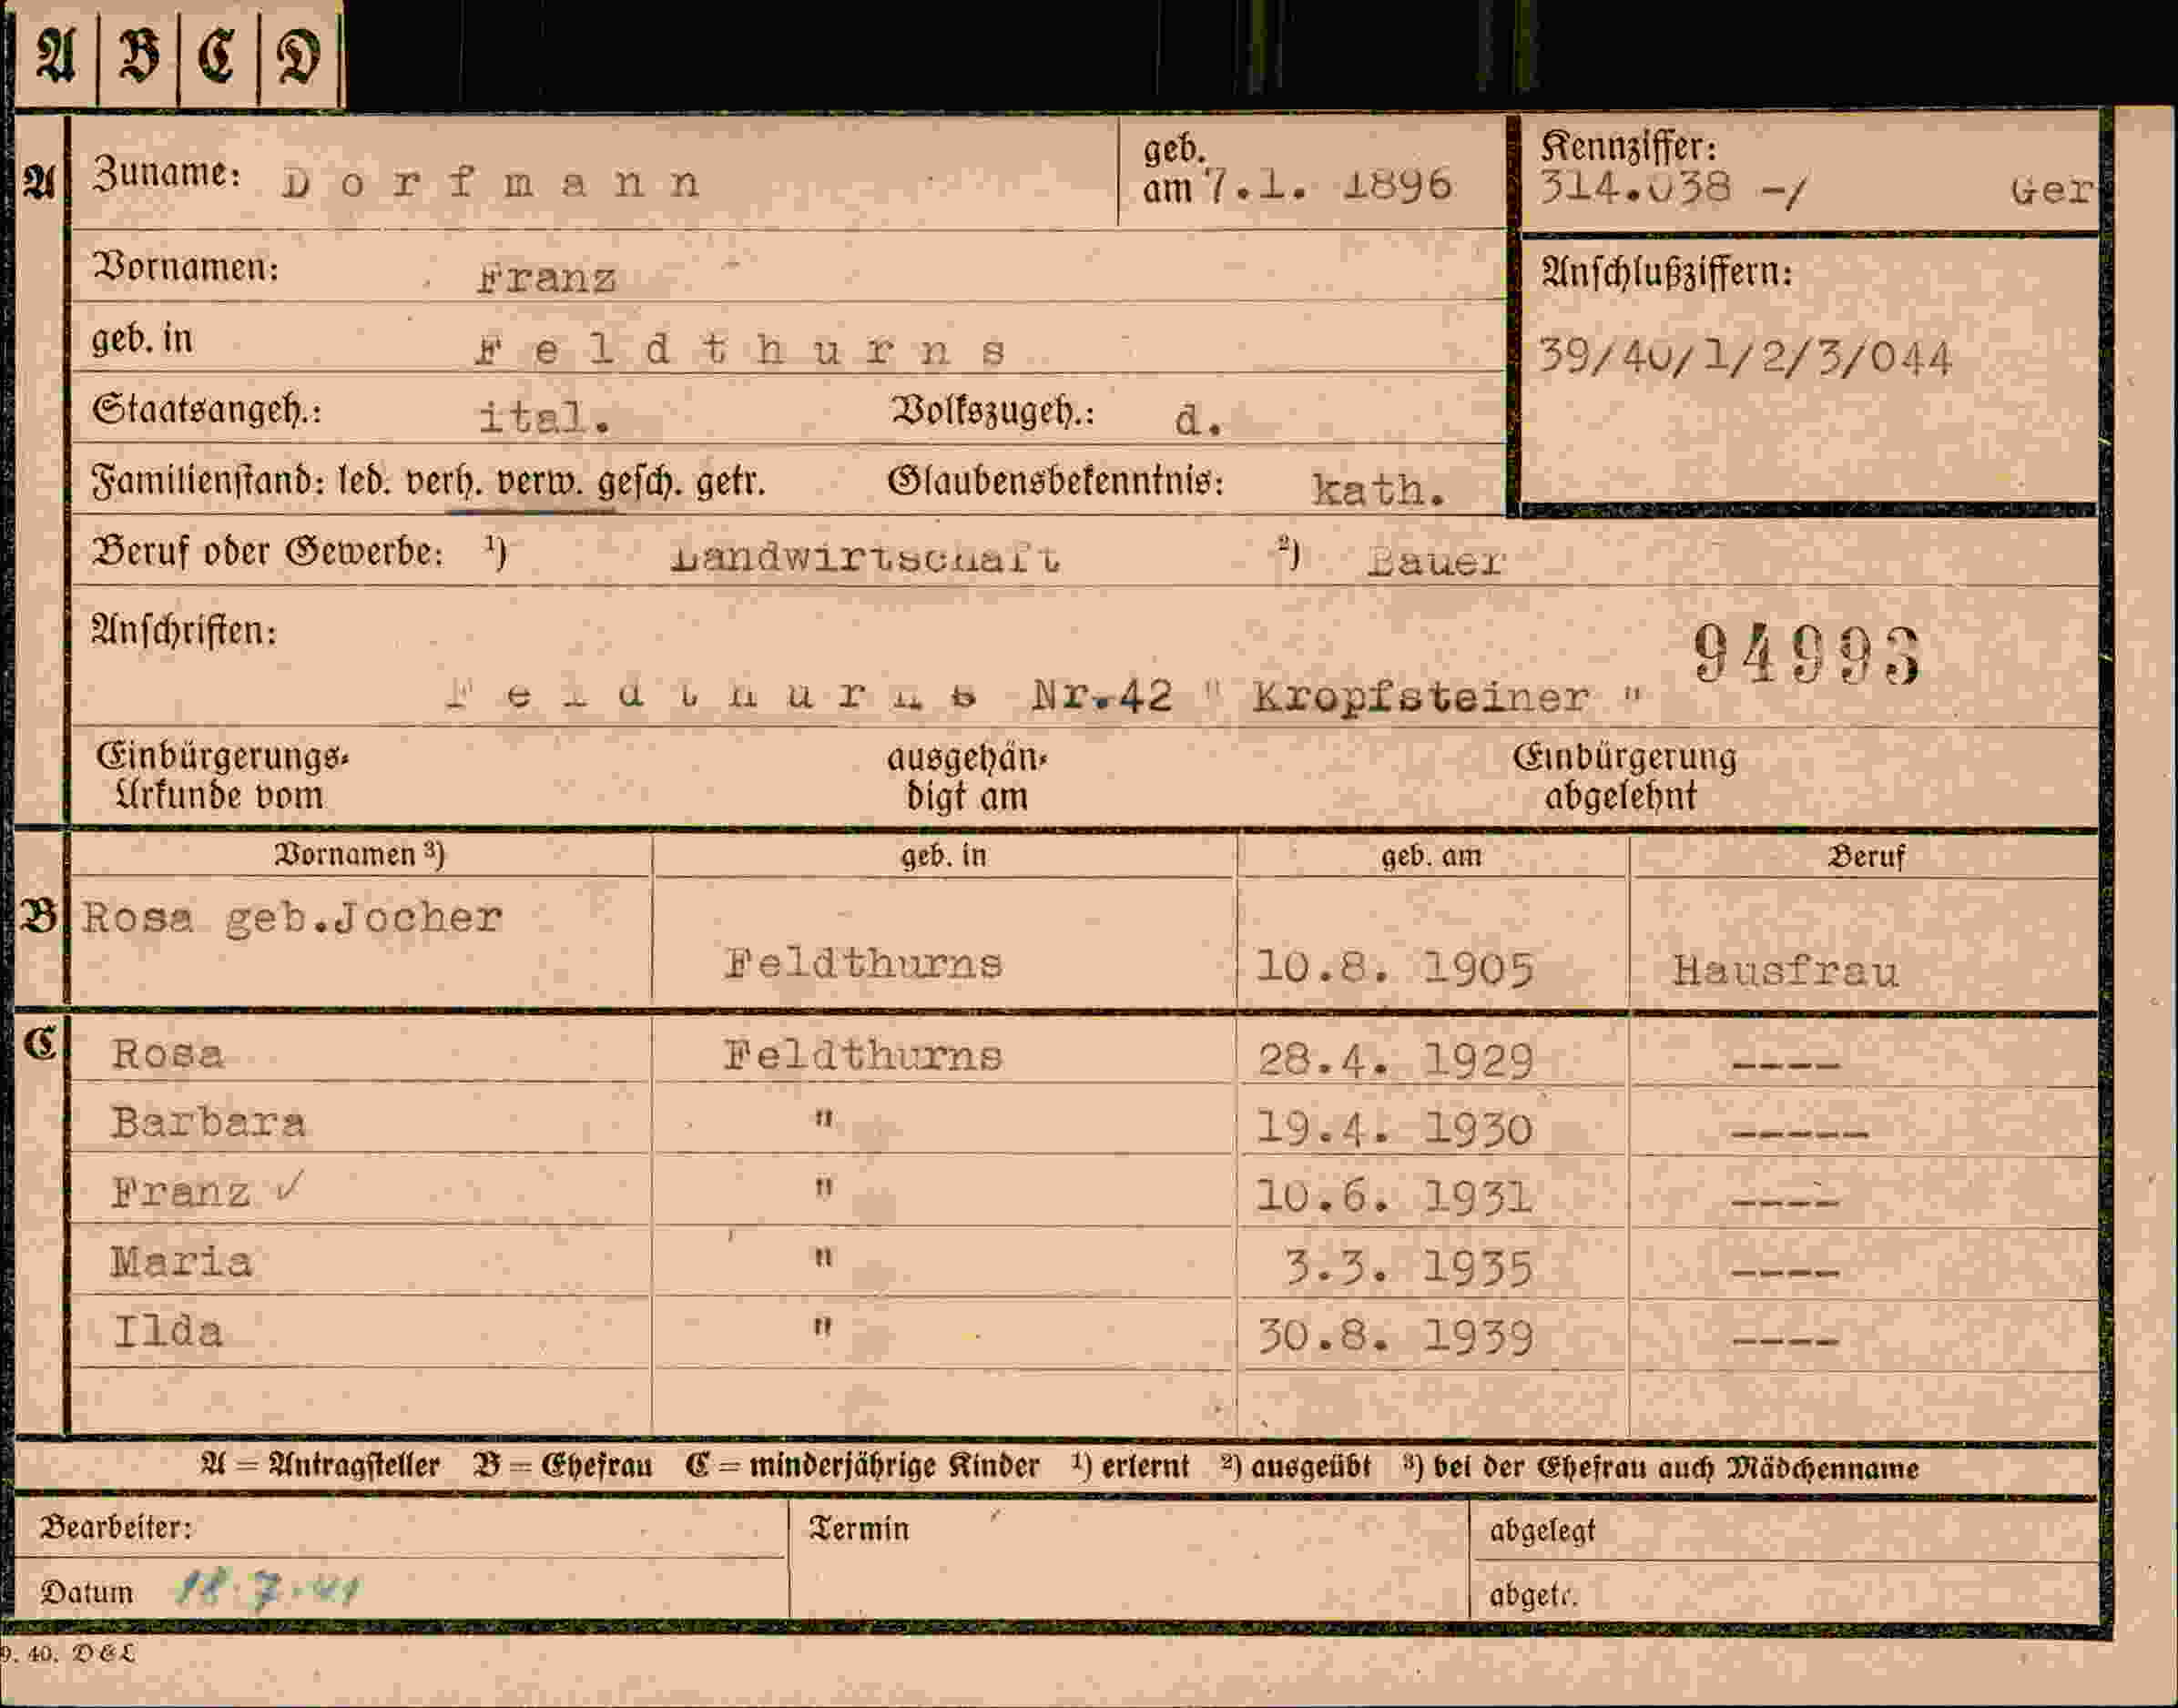 A B C D
A Zuname: Dorfmann geb. am 7.1. 1896 Kennziffer: 314.038 -/ Ger
Vornamen: Franz Anschlußziffern:
geb. in Feldthurns 39/40/1/2/3/044
Staatsangeh.: ital. Volkszugeh.: d.
Familienstand: led. verh. verw. gesch. getr. Glaubensbekenntnis: kath.
Beruf oder Gewerbe: 1) Landwirtschaft 2) Bauer
Anschriften: 94993
Feldthurns Nr.42 " Kropfsteiner "
Einbürgerungs- ausgehän- Einbürgerung
Urkunde vom digt am abgelehnt
Vornamen 3) geb. in geb. am Beruf
B Rosa geb.Jocher
Feldthurns 10.8. 1905 Hausfrau
C Rosa Feldthurns 28.4. 1929 ----
Barbara " 19.4. 1930 -----
Franz ✓ " 10.6. 1931 ----
Maria " 3.3. 1935 ----
Ilda " 30.8. 1939 ----
A = Antragsteller B = Ehefrau C = minderjährige Kinder 1) erlernt 2) ausgeübt 3) bei der Ehefrau auch Mädchenname
Bearbeiter: Termin abgelegt
Datum 18.7.41 abgetr.
9. 40. D&L